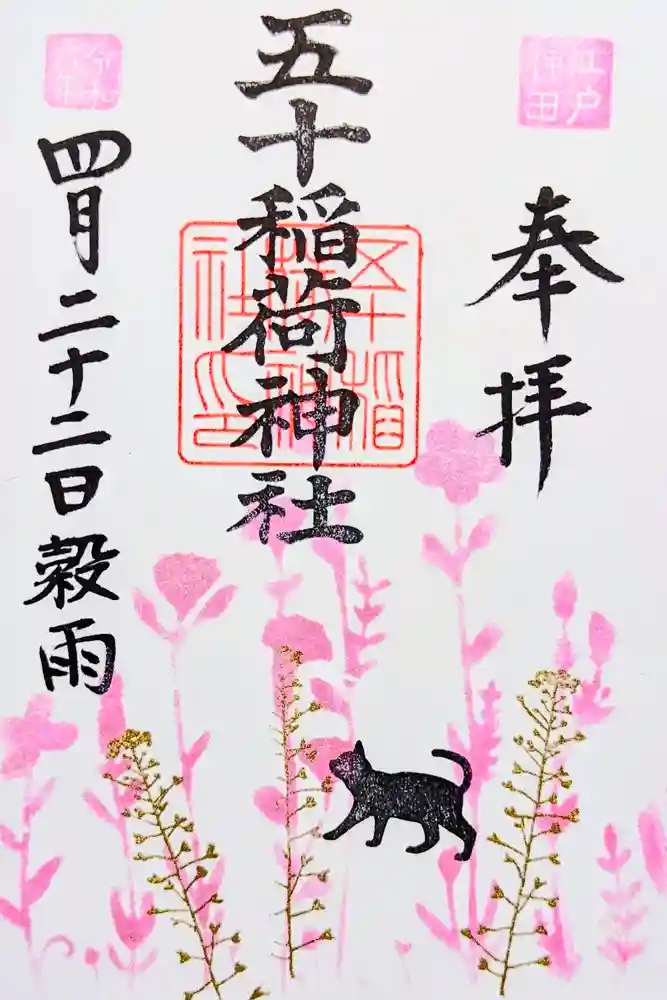 江戸
神田
奉拝
五十稲荷神社
五十稲
荷神
社印
令和
四月二十二日穀雨